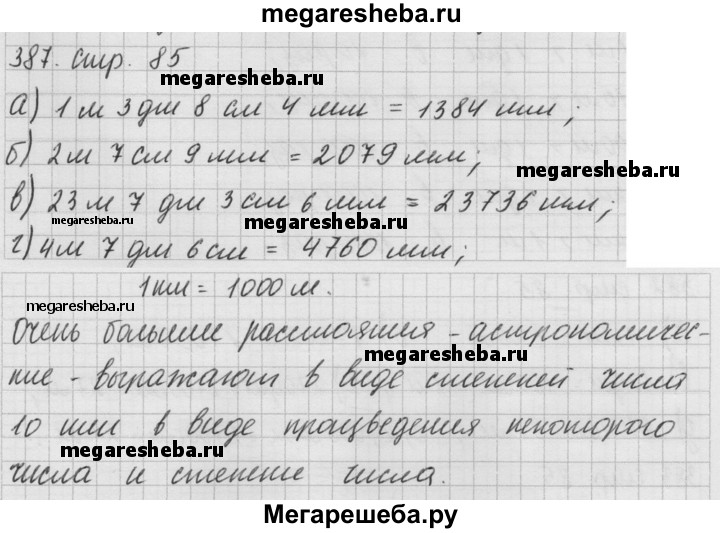 megaresheba.ru
387. стр. 85
megaresheba.ru
а) 1 м 3 дм 8 см 4 мм = 1384 мм;
б) 2 м 7 см 9 мм = 2079 мм;
megaresheba.ru
в) 23 м 7 дм 3 см 6 мм = 23736 мм;
megaresheba.ru megaresheba.ru
г) 4 м 7 дм 6 см = 4760 мм;
1 км = 1000 м.
megaresheba.ru
Очень большие расстояния - астрономичес-
megaresheba.ru
кие - выражают в виде степеней числа
10 или в виде произведения некоторого
megaresheba.ru
числа и степени числа.
Мегарешеба.ру